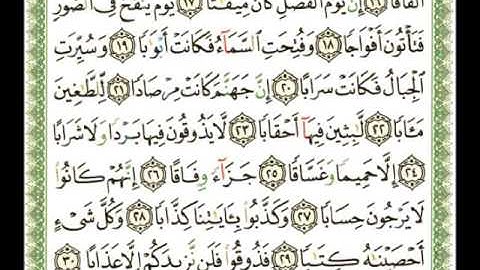 أَلْفَافًا ١٦ إِنَّ يَوْمَ الْفَصْلِ كَانَ مِيقَٰتًا ١٧ يَوْمَ يُنفَخُ فِى الصُّورِ
فَتَأْتُونَ أَفْوَاجًا ١٨ وَفُتِحَتِ السَّمَآءُ فَكَانَتْ أَبْوَٰبًا ١٩ وَسُيِّرَتِ
الْجِبَالُ فَكَانَتْ سَرَابًا ٢٠ إِنَّ جَهَنَّمَ كَانَتْ مِرْصَادًا ٢١ لِّلطَّٰغِينَ
مَـَٔابًا ٢٢ لَّٰبِثِينَ فِيهَآ أَحْقَابًا ٢٣ لَّا يَذُوقُونَ فِيهَا بَرْدًا وَلَا شَرَابًا
٢٤ إِلَّا حَمِيمًا وَغَسَّاقًا ٢٥ جَزَآءً وِفَاقًا ٢٦ إِنَّهُمْ كَانُوا۟
لَا يَرْجُونَ حِسَابًا ٢٧ وَكَذَّبُوا۟ بِـَٔايَٰتِنَا كِذَّابًا ٢٨ وَكُلَّ شَىْءٍ
أَحْصَيْنَٰهُ كِتَٰبًا ٢٩ فَذُوقُوا۟ فَلَن نَّزِيدَكُمْ إِلَّا عَذَابًا ٣٠